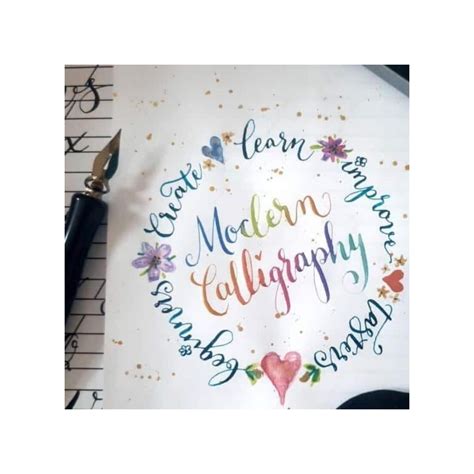 Modern
Calligraphy
create
learn
improve
tasters
beginners